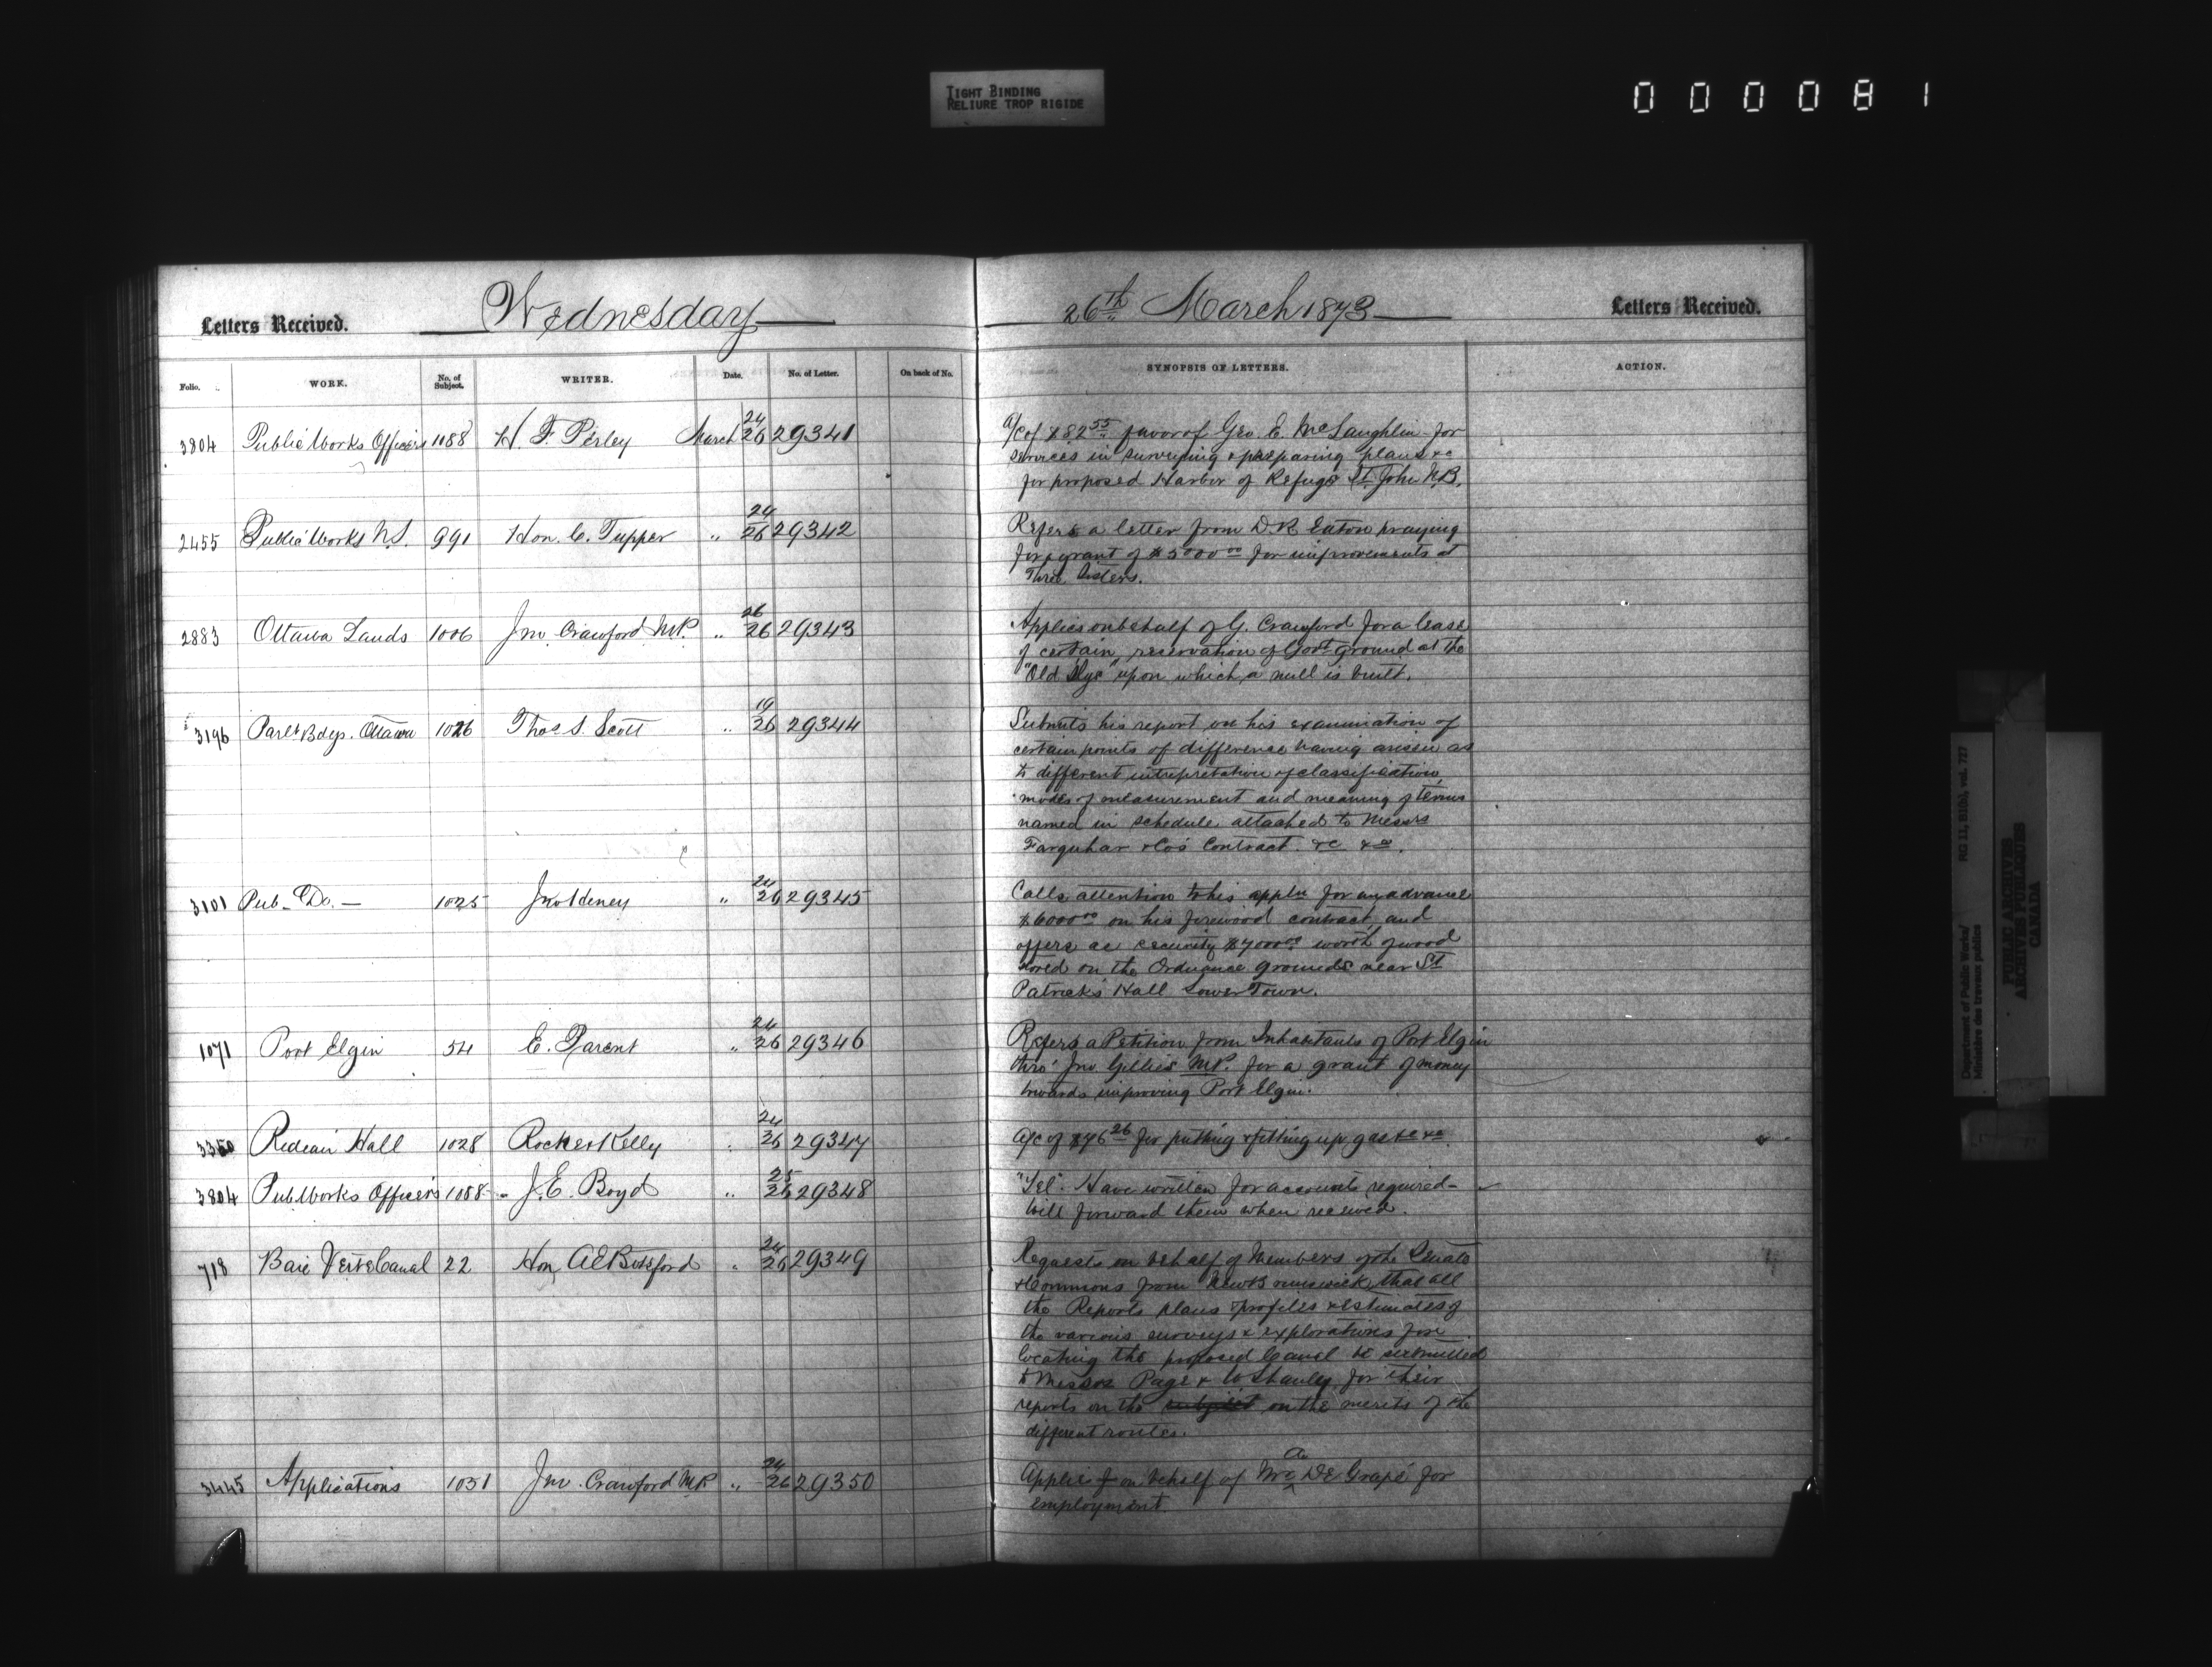 TIGHT BINDING
RELIURE TROP RIGIDE
000081
Letters Received.
Wednesday
26th March 1873
Letters Received.
Folio. WORK. No. of Subject. WRITER. Date. No. of Letter. On back of No. SYNOPSIS OF LETTERS. ACTION.
3804 Public Works Officers 1088 H. F. Perley March 24/26 29341
a/c of $82.55 favor of Geo. E. McLaughlin for
services in surveying & preparing plans &c
for proposed Harbor of Refuge St. John N.B.
2455 Public Works N.S. 991 Hon. C. Tupper " 24/26 29342
Refers a letter from D.R. Eaton praying
for a grant of $5000.00 for improvements at
Three Sisters.
2883 Ottawa Lands 1006 Jno Crawford M.P. " 26/26 29343
Applies on behalf of G. Crawford for a lease
of certain reservation of Govt ground at the
"Old Slys" upon which a mill is built.
3196 Parlt Bdgs. Ottawa 1026 Thos S. Scott " 19/26 29344
Submits his report on his examination of
certain points of difference having arisen as
to different intrepretation of classification,
modes of measurement and meaning of terms
named in schedule attached to Messrs
Farquhar & Co's Contract. &c &c.
3101 Pub. Do. — 1025 Jno Heney " 24/26 29345
Calls attention to his appln for an advance
$6000.00 on his firewood contract, and
offers as security $7000.00 worth of wood
stored on the Ordnance grounds near St
Patrick's Hall Lower Town.
1071 Port Elgin 54 E. Parent " 24/26 29346
Refers a Petition from Inhabitants of Port Elgin
thro' Jno Gillies M.P. for a grant of money
towards improving Port Elgin.
3350 Rideau Hall 1028 Rocher Kelly " 24/26 29347
a/c of $76.26 for putting & fitting up gas &c &c.
3804 Pub Works Officers 1088 J. E. Boyd " 25/26 29348
"Tel". Have written for accounts required—
will forward them when received.
718 Baie Verte Canal 22 Hon A E Botsford " 24/26 29349
Requests on behalf of Members of the Senate
& Commons from New Brunswick, that all
the Reports plans & profiles & estimates of
the various surveys & explorations for
locating the proposed Canal be submitted
to Messrs Page & W Shanley for their
reports on the subject on the merits of the
different routes.
3445 Applications 1051 Jno. Crawford M.P. " 24/26 29350
Applies on behalf of Mr A De Grapé for
employment.
Department of Public Works/
Ministère des travaux publics
RG 11, B1(b), vol. 727
PUBLIC ARCHIVES
ARCHIVES PUBLIQUES
CANADA